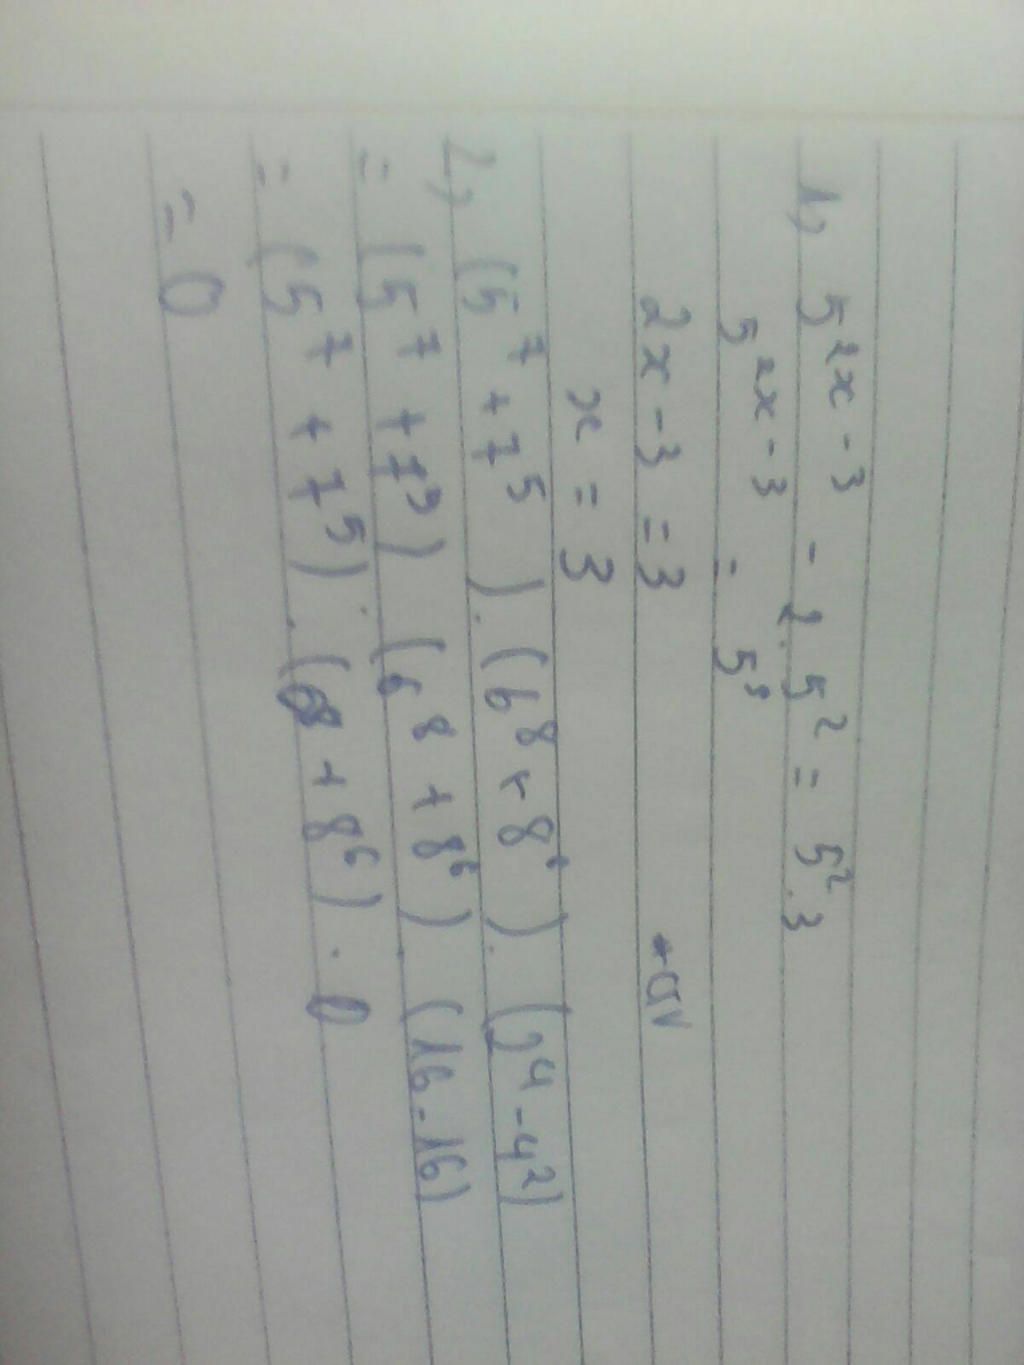 1, 5^{2x-3} - 2.5^2 = 5^2.3
5^{2x-3} = 5^3
2x-3 = 3
x = 3
2, (5^7 + 7^5).(6^8 + 8^6).(2^4 - 4^2)
= (5^7 + 7^5) (6^8 + 8^6).(16-16)
= (5^7 + 7^5).(68 + 8^6).0
= 0